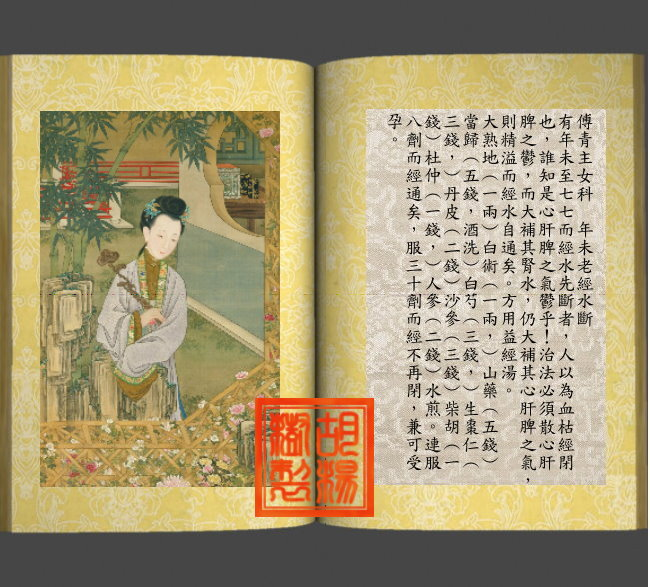 傅青主女科　年未老經水斷
有年未至七七而經水先斷者，人以為血枯經閉
也，誰知是心肝脾之氣鬱乎！治法必須散心肝
脾之鬱，而大補其腎水，仍大補其心肝脾之氣，
則精溢而經水自通矣。方用益經湯。
大熟地（一兩）白術（一兩，）山藥（五錢）
當歸（五錢，酒洗）白芍（三錢，）生棗仁（
三錢，）丹皮（二錢）沙參（三錢）柴胡（一
錢）杜仲（一錢，）人參（二錢）水煎。連服
八劑而經通矣，服三十劑而經不再閉，兼可受
孕。
胡楊
製